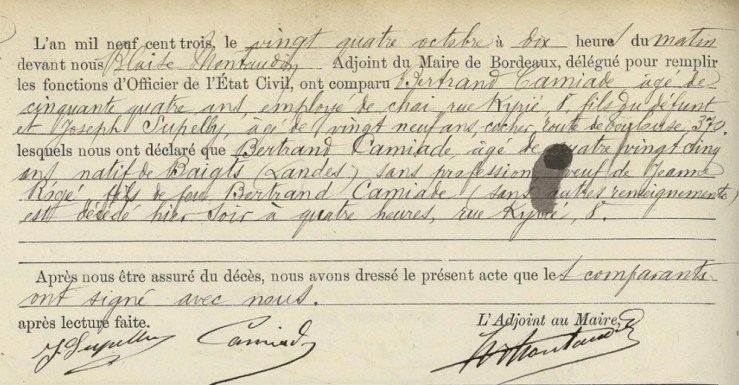 L'an mil neuf cent trois, le vingt quatre octobre à dix heures du matin
devant nous Blaise Montaudon Adjoint du Maire de Bordeaux, délégué pour remplir
les fonctions d'Officier de l'État Civil, ont comparu Bertrand Camiade, âgé de
cinquante quatre ans, employé de chai, rue Kyrié 8, fils du défunt
et Joseph Supelby, âgé de vingt neuf ans, cocher, route de Toulouse, 370.
lesquels nous ont déclaré que Bertrand Camiade, âgé de quatre vingt cinq
ans natif de Baigts (Landes) sans profession veuf de Jeanne
fils de feu Bertrand Camiade (sans autres renseignements)
est décédé hier soir à quatre heures, rue Kyrié, 8.
Après nous être assuré du décès, nous avons dressé le présent acte que les comparants
ont signé avec nous.
après lecture faite. L'Adjoint au Maire,
J Supelby Camiade